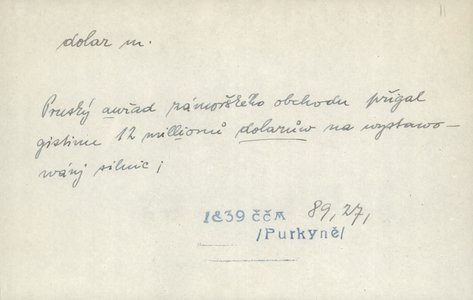 dolar m.
Pruský auřad zámořského obchodu přigal
gistinu 12 millionů dolarůw na wystawo-
wánj silnic;
1839 ČČM 89,27,
/Purkyně/